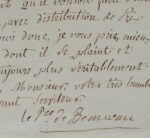 avec distribution de
donc, je vous prie, mieux
dont il se plaint et
toujours plus véritablement
Monsieur, votre très humble
serviteur
le Pce de Beauvau